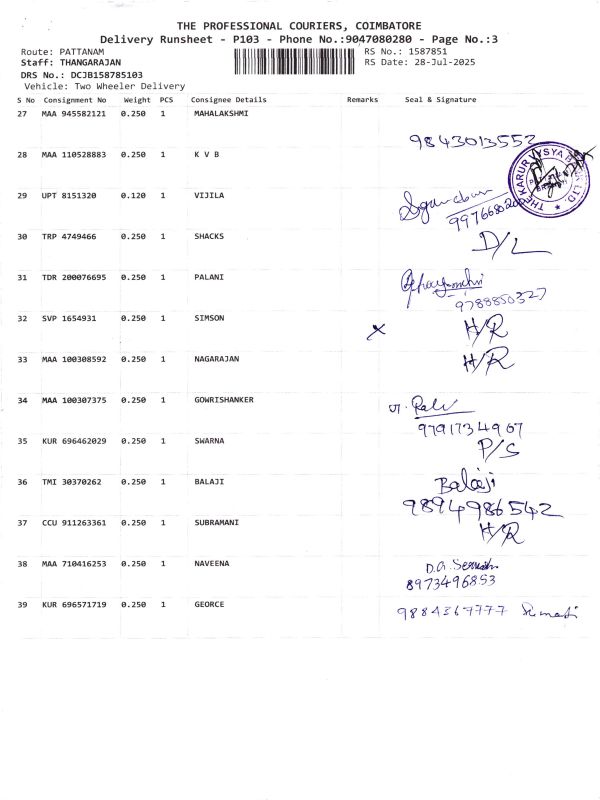 THE PROFESSIONAL COURIERS, COIMBATORE
Delivery Runsheet - P103 - Phone No.:9047080280 - Page No.:3
Route: PATTANAM RS No.: 1587851
Staff: THANGARAJAN RS Date: 28-Jul-2025
DRS No.: DCJB158785103
Vehicle: Two Wheeler Delivery
S No Consignment No Weight PCS Consignee Details Remarks Seal & Signature
27 MAA 945582121 0.250 1 MAHALAKSHMI
9843013552
28 MAA 110528883 0.250 1 K V B
THE KARUR VYSYA BANK LTD.
29 UPT 8151320 0.120 1 VIJILA
30 TRP 4749466 0.250 1 SHACKS D/L
31 TDR 200076695 0.250 1 PALANI
9788850327
32 SVP 1654931 0.250 1 SIMSON X H/R
33 MAA 100308592 0.250 1 NAGARAJAN H/R
34 MAA 100307375 0.250 1 GOWRISHANKER
9791734967
35 KUR 696462029 0.250 1 SWARNA P/S
36 TMI 30370262 0.250 1 BALAJI Balaji
9894986542
37 CCU 911263361 0.250 1 SUBRAMANI H/R
38 MAA 710416253 0.250 1 NAVEENA D.G.
8973496853
39 KUR 696571719 0.250 1 GEORCE 9884367777